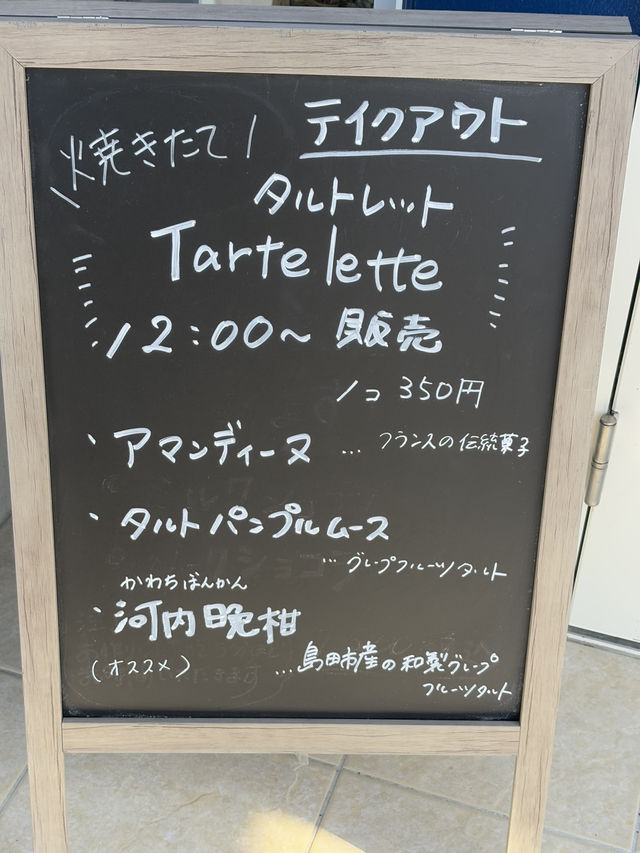 焼きたて!
テイクアウト
タルトレット
Tartelette
12:00~ 販売
1コ 350円
・アマンディーヌ … フランスの伝統菓子
・タルトパンプルムース
… グレープフルーツタルト
かわちばんかん
・河内晩柑
(オススメ) … 島田市産の和製グレープ
フルーツタルト